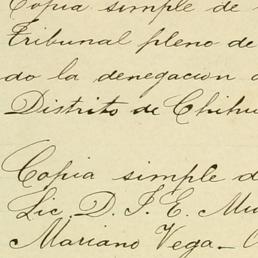 Copia simple de
Tribunal pleno de
do la denegacion
Distrito de Chihu
Copia simple d
Lic. D. J. E. Mu
Mariano Vega_